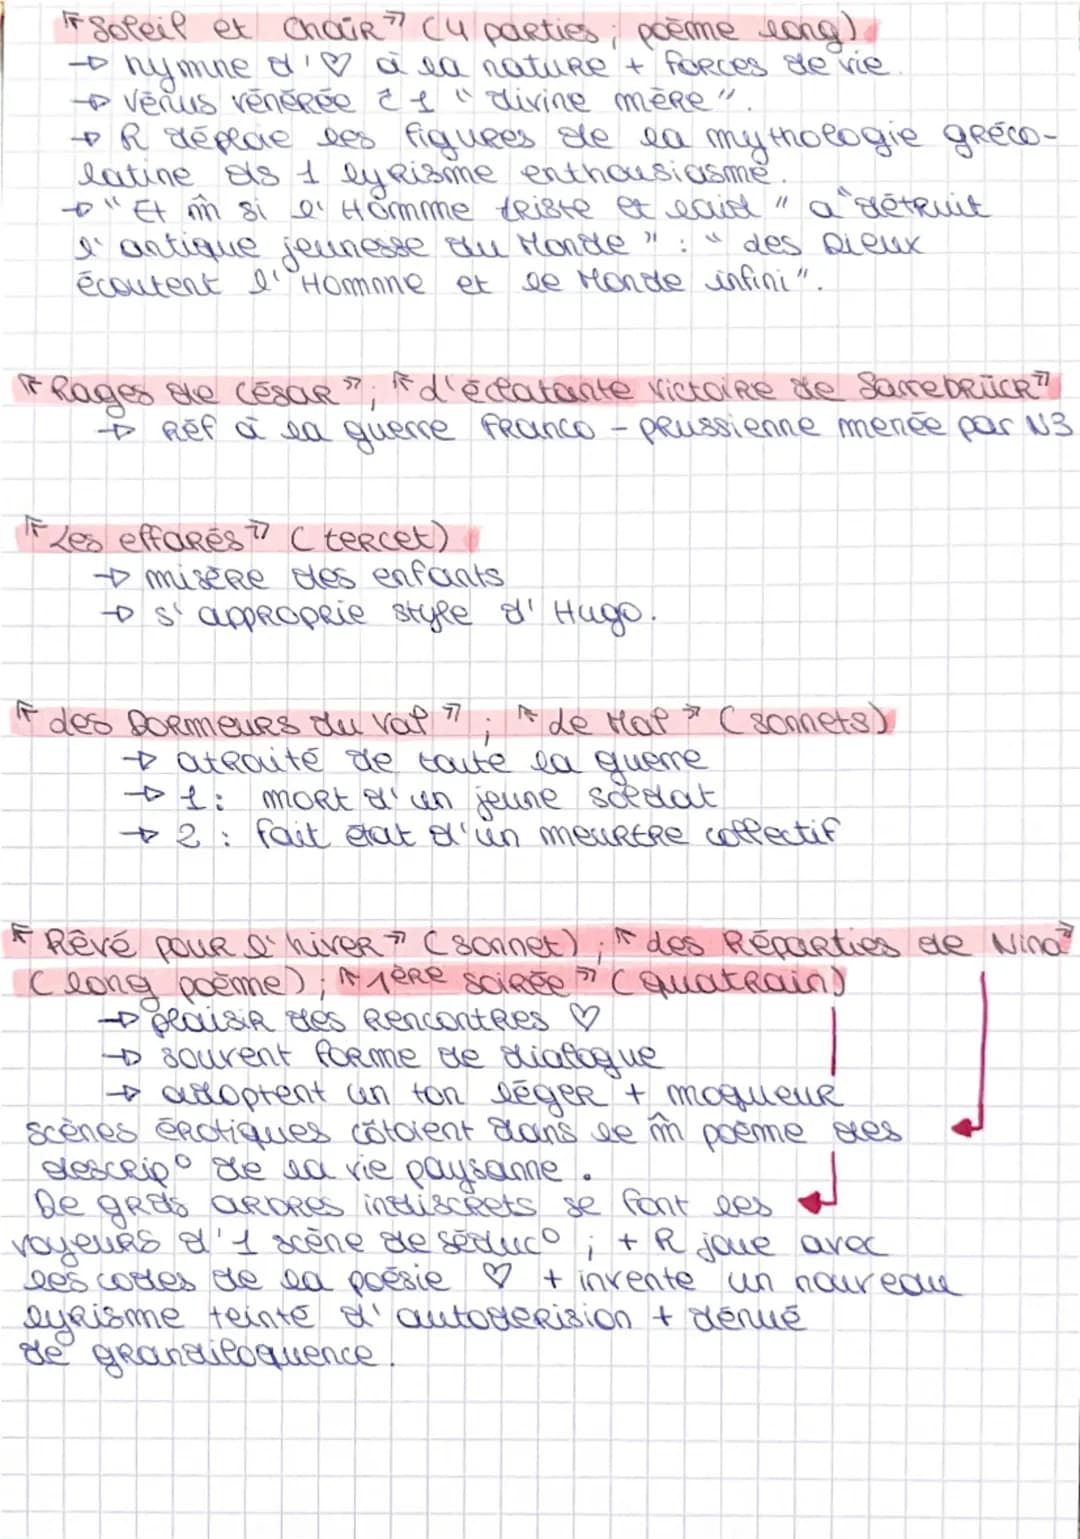 "Soleil et Chair" (4 parties ; poème long)
→ hymne d'♡ à la nature + forces de vie.
→ Vénus vénérée c̄ 1 "divine mère".
→ R déploie les figures de la mythologie gréco-
latine ds 1 lyrisme enthousiasmé.
→ "Et m̂ si l'Homme triste et laid" a "détruit
l'antique jeunesse du Monde" : "des Dieux
écoutent l'Homme et le Monde infini".
"Rages de César" ; "L'éclatante victoire de Sarrebrück"
→ Réf à la guerre franco-prussienne menée par N3
"Les effarés" (tercet)
→ misère des enfants
→ s'approprie style d'Hugo.
"Les Dormeurs du val" ; "Le Mal" (sonnets)
→ atrocité de toute la guerre
→ 1 : mort d'un jeune soldat
→ 2 : fait état d'un meurtre collectif
"Rêvé pour l'hiver" (sonnet) ; "Les Réparties de Nina"
(long poème) ; "1ère soirée" (quatrain)
→ plaisir des rencontres ♡
→ souvent forme de dialogue
→ adoptent un ton léger + moqueur
scènes érotiques côtoient dans le m̂ poème des
descrip° de la vie paysanne.
De grds arbres indiscrets se font les
voyeurs d'1 scène de séduc° ; + R joue avec
les codes de la poésie ♡ + invente un nouveau
lyrisme teinté d'autodérision + dénué
de grandiloquence.